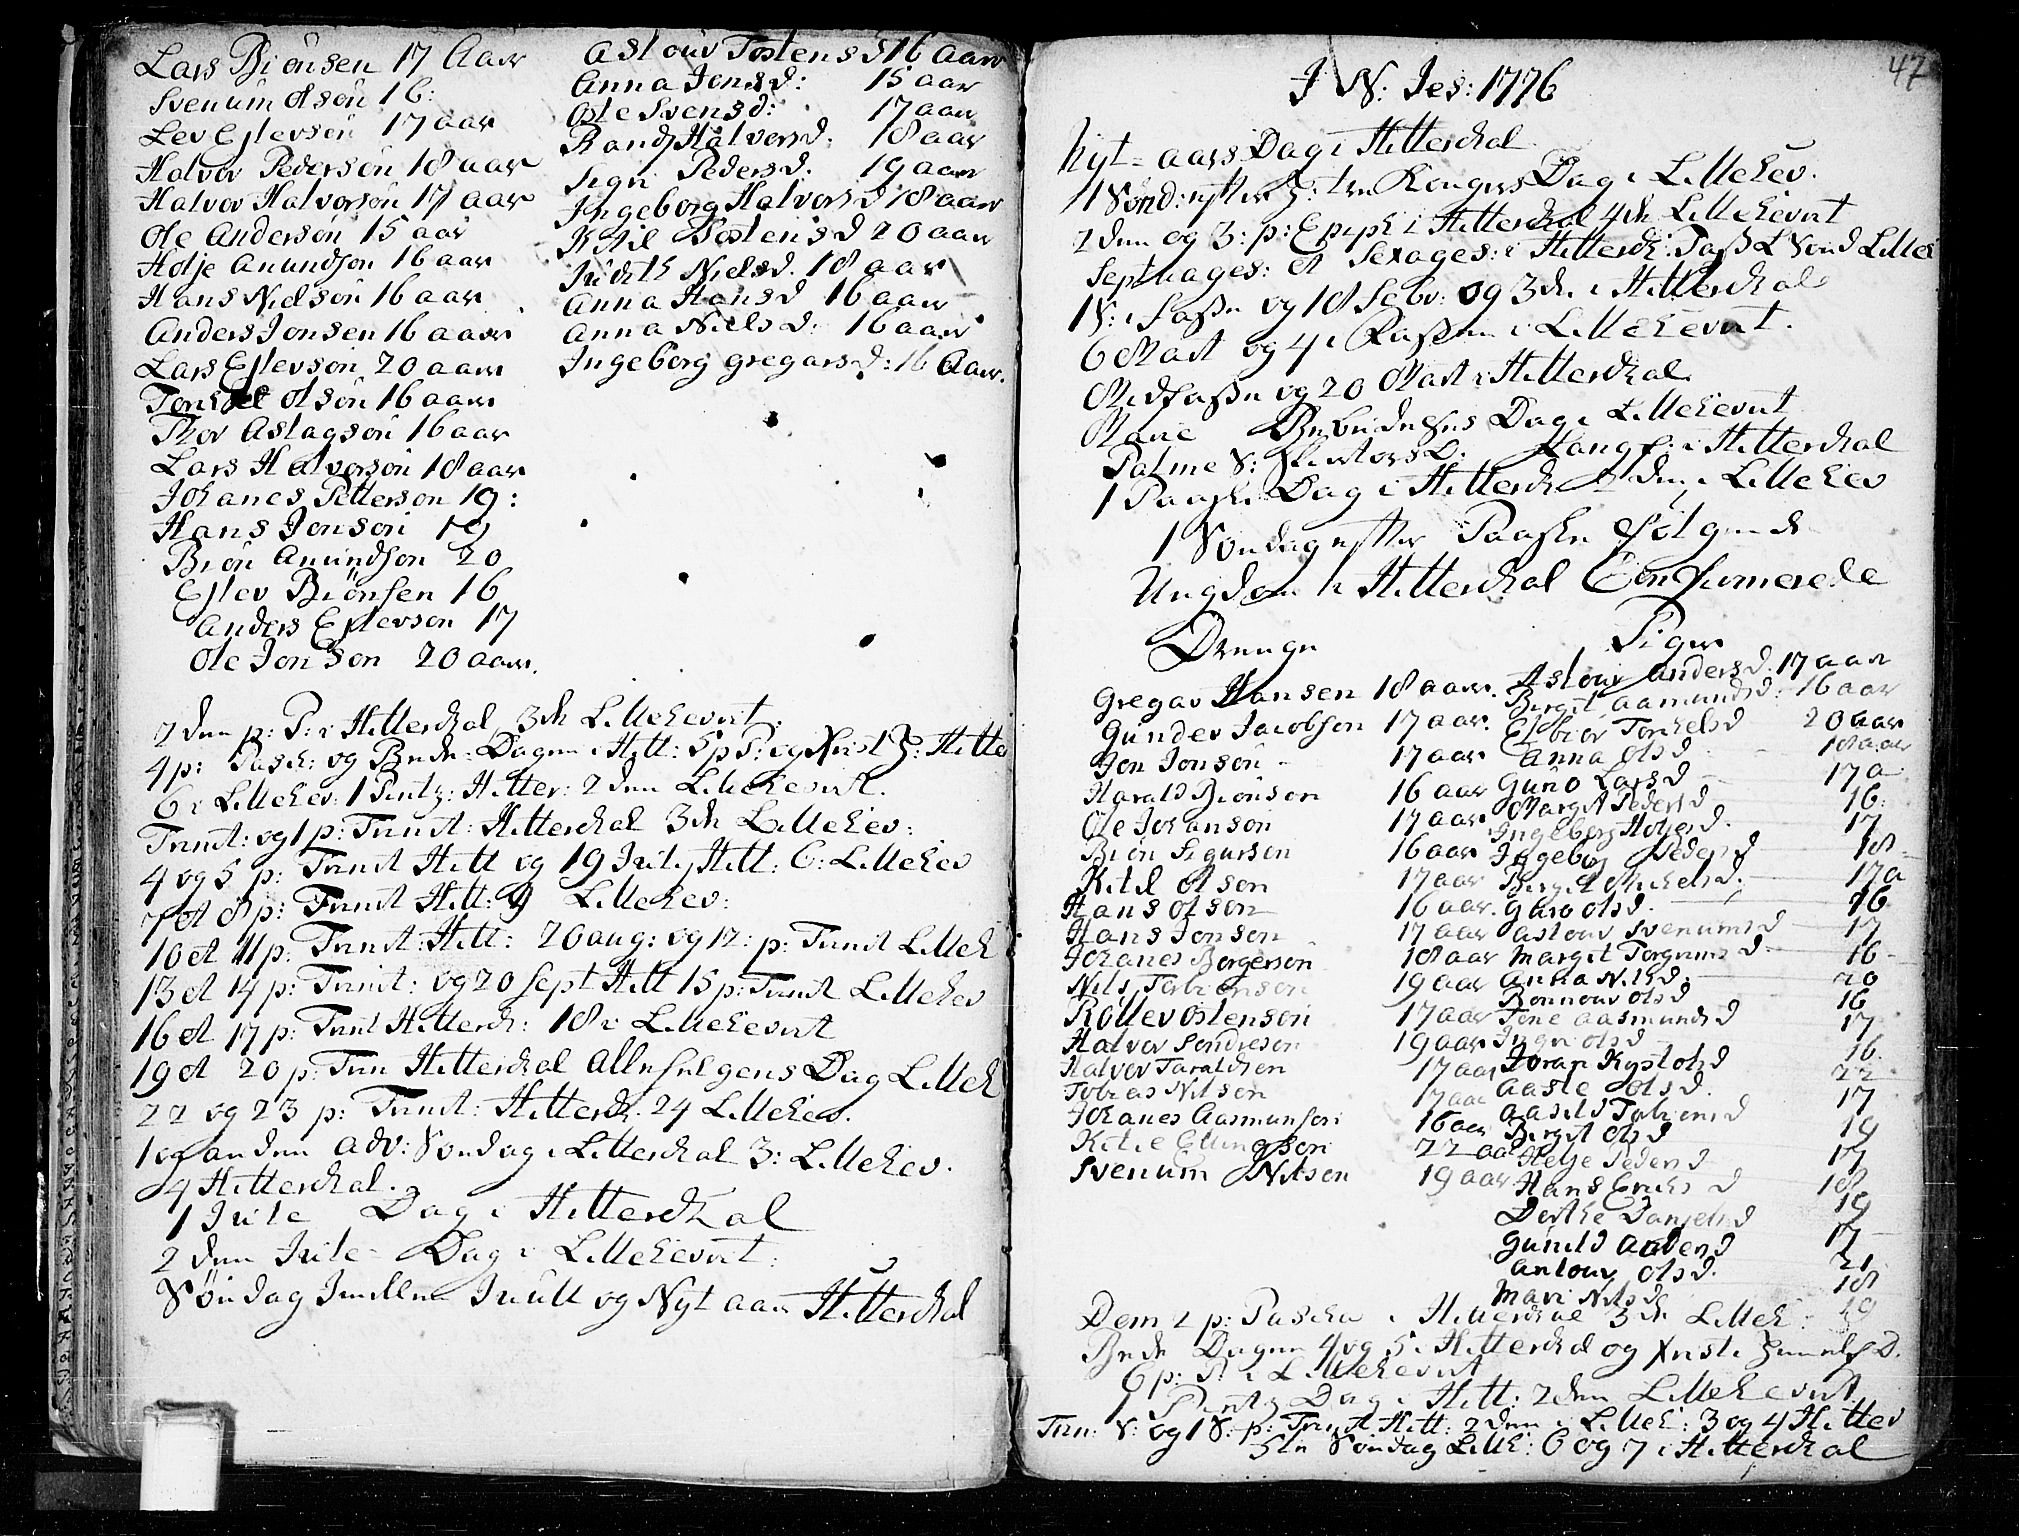 Lars Biönsen 17 Aar
Svenum olsön 16:
Lev Eslevsön 17 aar
Halvor Pedersön 18 aar
Halvor Halvorsön 17 aar
Ole Andersön 15 aar
Holje Anundson 16 aar
Hans Nielsön 16 aar
Anders Jonsen 16 aar
Lars Eslevsön 20 aar
olsön 16 aar
Thor Aslagsön 16 aar
Lars Halvorsön 18 aar
Johanes Pettersön 19:
Hans Jonsön 19
Biön Anundson 20
Eslev Biönsen 16
Anders Eslevson 17
Ole Jonsson 20 aar.
Aslouv Tostensd 16 aar
Anna Jensd: 15 aar
Osle Svensd: 17 aar
Randj Halvorsd: 18 aar
Signi Pedersd: 19 aar
Ingeborg Halvorsd 18 aar
Kitil Tostensd 20 aar
Judith Nielsd. 18 aar
Anna Hansd 16 aar
Anna Nielsd: 16 aar
Ingeborg gregarsd: 16 Aar.
2den p: P: i Hitterdal 3de Lillehervet.
4 p: Pasch: og Bede-Dagen i Hitt: 5 p P: og Xrist H: Hitte
6 i Lillehev: 1 Pintz: Hitter: 2den Lillehervet.
Trinit: og 1 p: Trinit: Hitterdal 3de Lillehev:
4 og 5 p: Trinit Hitt og 19 Julij Hitt: 6: Lillehev
7 et 8 p: Trinit Hitt: 9 Lillehev:
10 et 11 p: Trinit: Hitt: 20 aug: og 12: p: Trinit Lilleh
13 et 14 p: Trinit: og 20 Sept Hitt 15 p: Trinit Lillehev
16 et 17 p: Trinit Hitterd: 18 i Lillehervet
19 et 20 p: Trin Hitterdal Allehelgens Dag Lilleh
22 og 23 p: Trinit: Hitterd: 24 Lillehev.
1 og anden Adv: Søndag i Litterdal 3: Lillehev.
4 Hitterdal.
1 Jule Dag i Hitterdal
2den Jule-Dag i Lillehervet:
Søndag Imellem Juull og Nyt aar Hitterdal
47
J N: Jes: 1776
Nyt-aars Dag i Hitterdal
1 Sönd: efter H: tre Kongers Dag i Lillehev.
2den og 3: p: Epiph i Hitterdal 4de Lillehervet
Septuages: et Sexages: i Hitterd: Fast Sönd Lilleh
1 S: i Faste og 18 Febr: og 3de i Hitterdal
6 Mart og 4 i Fasten i Lillehervet.
Midfaste og 20 Mart i Hitterdal
Marie Bebudelses Dag i Lillehervet
Palme S: Skiertorsd: Langf: i Hitterdal
1 Paaske Dag i Hitterd 2den i Lillehev
1 Søndag efter Paaske følgende
Ungdom i Hitterdal Confirmerede
Drenge
Gregar Hansen 18 aar.
Gunder Jacobsen 17 aar.
Jon Jonsön 17 aar
Harald Biönsen 16 aar
Ole Johanson 17 aar
Biön Sigursen 16 aar
Kitil olsön 17 aar
Hans olson 16 aar.
Hans Jonson 17 aar
Johanes Borgerson 18 aar
Nils Torbiönsön 19 aar
Röllev ostensön 17 aar
Halvor Sondresen 19 aar
Halvor Taraldsen 17 aar
Tobias Nilsen 17 aar
Johanes Aasmunson 16 aar
Kitil Ellingsson 22 aar
Svenum Nilson 19 aar
Piger
Aslouv Andersd. 17 aar
Birgit Aamundsd: 16 aar
Torkelsd 20 aar
Anna olsd 18 aar
Guno Larsd 17 a
Margit Pedersd 16:
Ingeborg Holjesd. 17
Ingeborg Pedersd 18
Birgit Mickelsd. 17 a
Guro olsd. 16
Aslouv Svenumsd 17
Margit Torgrimsd 16
Anna Nilsd. 20
Rönnouv olsd 16
Tone Aasmundsd 17
Ingri olsd 16
Joran Kystolsd 22
Aasle olsd. 17
Aasild Torbiönsd 19
Birgit olsd 17
Helje Pedersd 18
Hans Ericksd 19
Dorthe Danielsd 17
Gunild Andersd 21
Antouv olsd. 18
Mari Nilsd 19
Dom 2 p: Pascha i Hitterdal 3de Lilleh:
Bede Dagen 4 og 5 i Hitterdal og Xristi Himmelf D.
6 p: P: i Lillehervet
1 Pintz Dag i Hitt: 2den Lillehervet
Trin: S: og 1 S: p: Trinit Hitt: 2den i Lilleh: 3 og 4 Hitter
5te Søndag Lilleh: 6 og 7 i Hitterdal